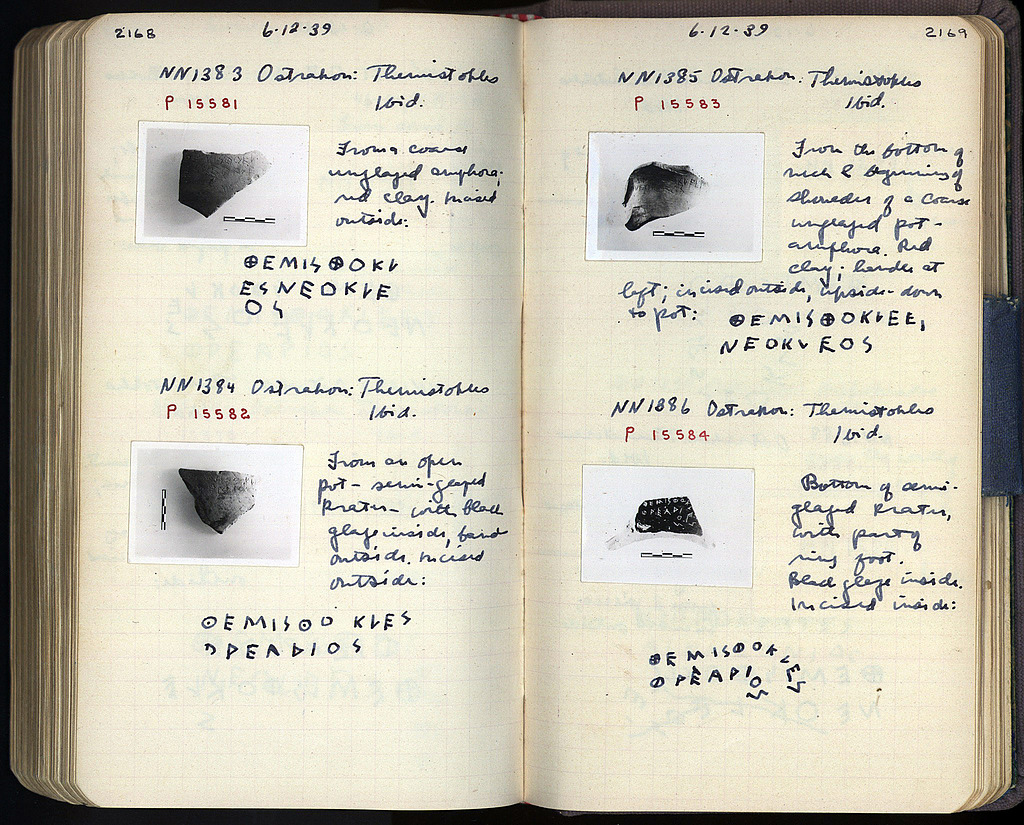 2168
6-12-39
NN1383 Ostrakon: Themistokles
P 15581 Ibid.
From a coarse
unglazed amphora;
red clay. Incised
outside:
ⴲEMISⴲOKV
ESNEOKVE
OS
NN1384 Ostrakon: Themistokles
P 15582 Ibid.
From an open
pot - semi-glazed
krater - with black
glaze inside, band
outside. Incised
outside:
ʘEMISʘO KVES
DEADIOS
2169
6-12-39
NN1385 Ostrakon: Themistokles
P 15583 Ibid.
From the bottom of
neck & beginning of
shoulder of a coarse
unglazed pot -
amphora. Red
clay; handle at
left; incised outside, upside-down
to pot:
ⴲEMISⴲOKVEE,
NEOKVEOS
NN1386 Ostrakon: Themistokles
P 15584 Ibid.
Bottom of semi-
glazed krater,
with part of
ring foot.
Black glaze inside.
Incised inside:
ⴲEMISⴲOKVES